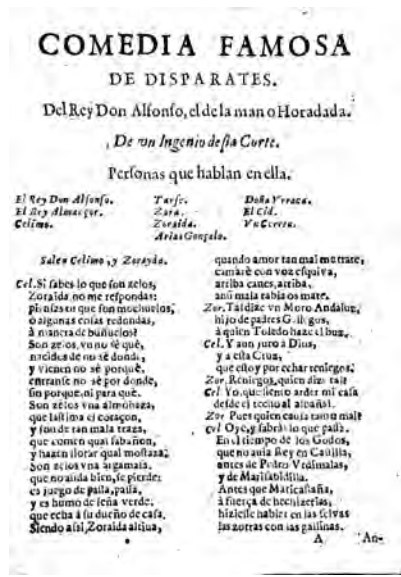 COMEDIA FAMOSA
DE DISPARATES.
Del Rey Don Alfonso, el de la mano Horadada.
De vn Ingenio desta Corte.
Personas que hablan en ella.
El Rey Don Alfonso.
El Rey Almançor.
Celimo.
Tarfe.
Zara.
Zoraida.
Arias Gonçalo.
Doña Vrraca.
El Cid.
Vn
Salen Celimo, y Zorayda.
Cel. Si sabes lo que son zelos,
Zoraida, no me respondas:
piensas que son mochuelos,
ò algunas cosas redondas,
à manera de buñuelos?
Son zelos, vn no sè què,
nacidos de no sè donde,
y vienen no sè porquè,
entranse no sè por donde,
sin porque, ni para què.
Son zelos vna almohaza,
que lastima el coraçon,
y son de tan mala traza,
que comen qual sabañon,
y hazen llorar qual mostaza.
Son zelos vna argamasa,
que no anda bien, se pierde:
es juego de passa, passa,
y es humo de leña verde,
que echa à su dueño de casa.
Siendo assi, Zoraida altiua,
quando amor tan mal me trate,
cantarè con voz esquiva,
arriba canes, arriba,
que mala rabia os mate.
Zor. Tal dize vn Moro Andaluz,
hijo de padres Gallegos,
à quien Toledo haze el buz,
Cel. Y aun juro à Dios,
y a esta Cruz,
que estoy por echar reniegos.
Zor. Reniegos, quien dize tal?
Cel. Yo, que siento arder mi casa
desde el techo al
Zor. Pues quien causa tanto mal?
Cel. Oye, y sabràs lo que passa.
En el tiempo de los Godos,
que no auia Rey en Castilla,
antes de Pedro
y de
Antes que Maricastaña,
à fuerça de hechizerias,
hiziesse hablar en las selvas
las zorras con las gallinas.
A
An-